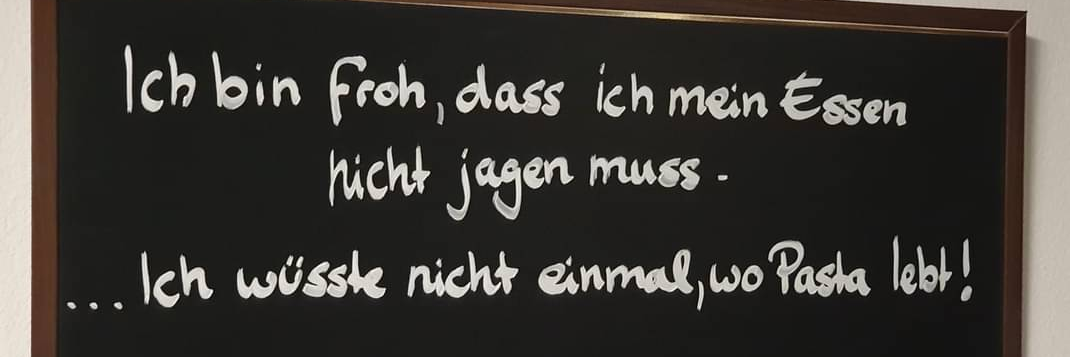 Ich bin froh, dass ich mein Essen
nicht jagen muss.
... Ich wüsste nicht einmal, wo Pasta lebt!